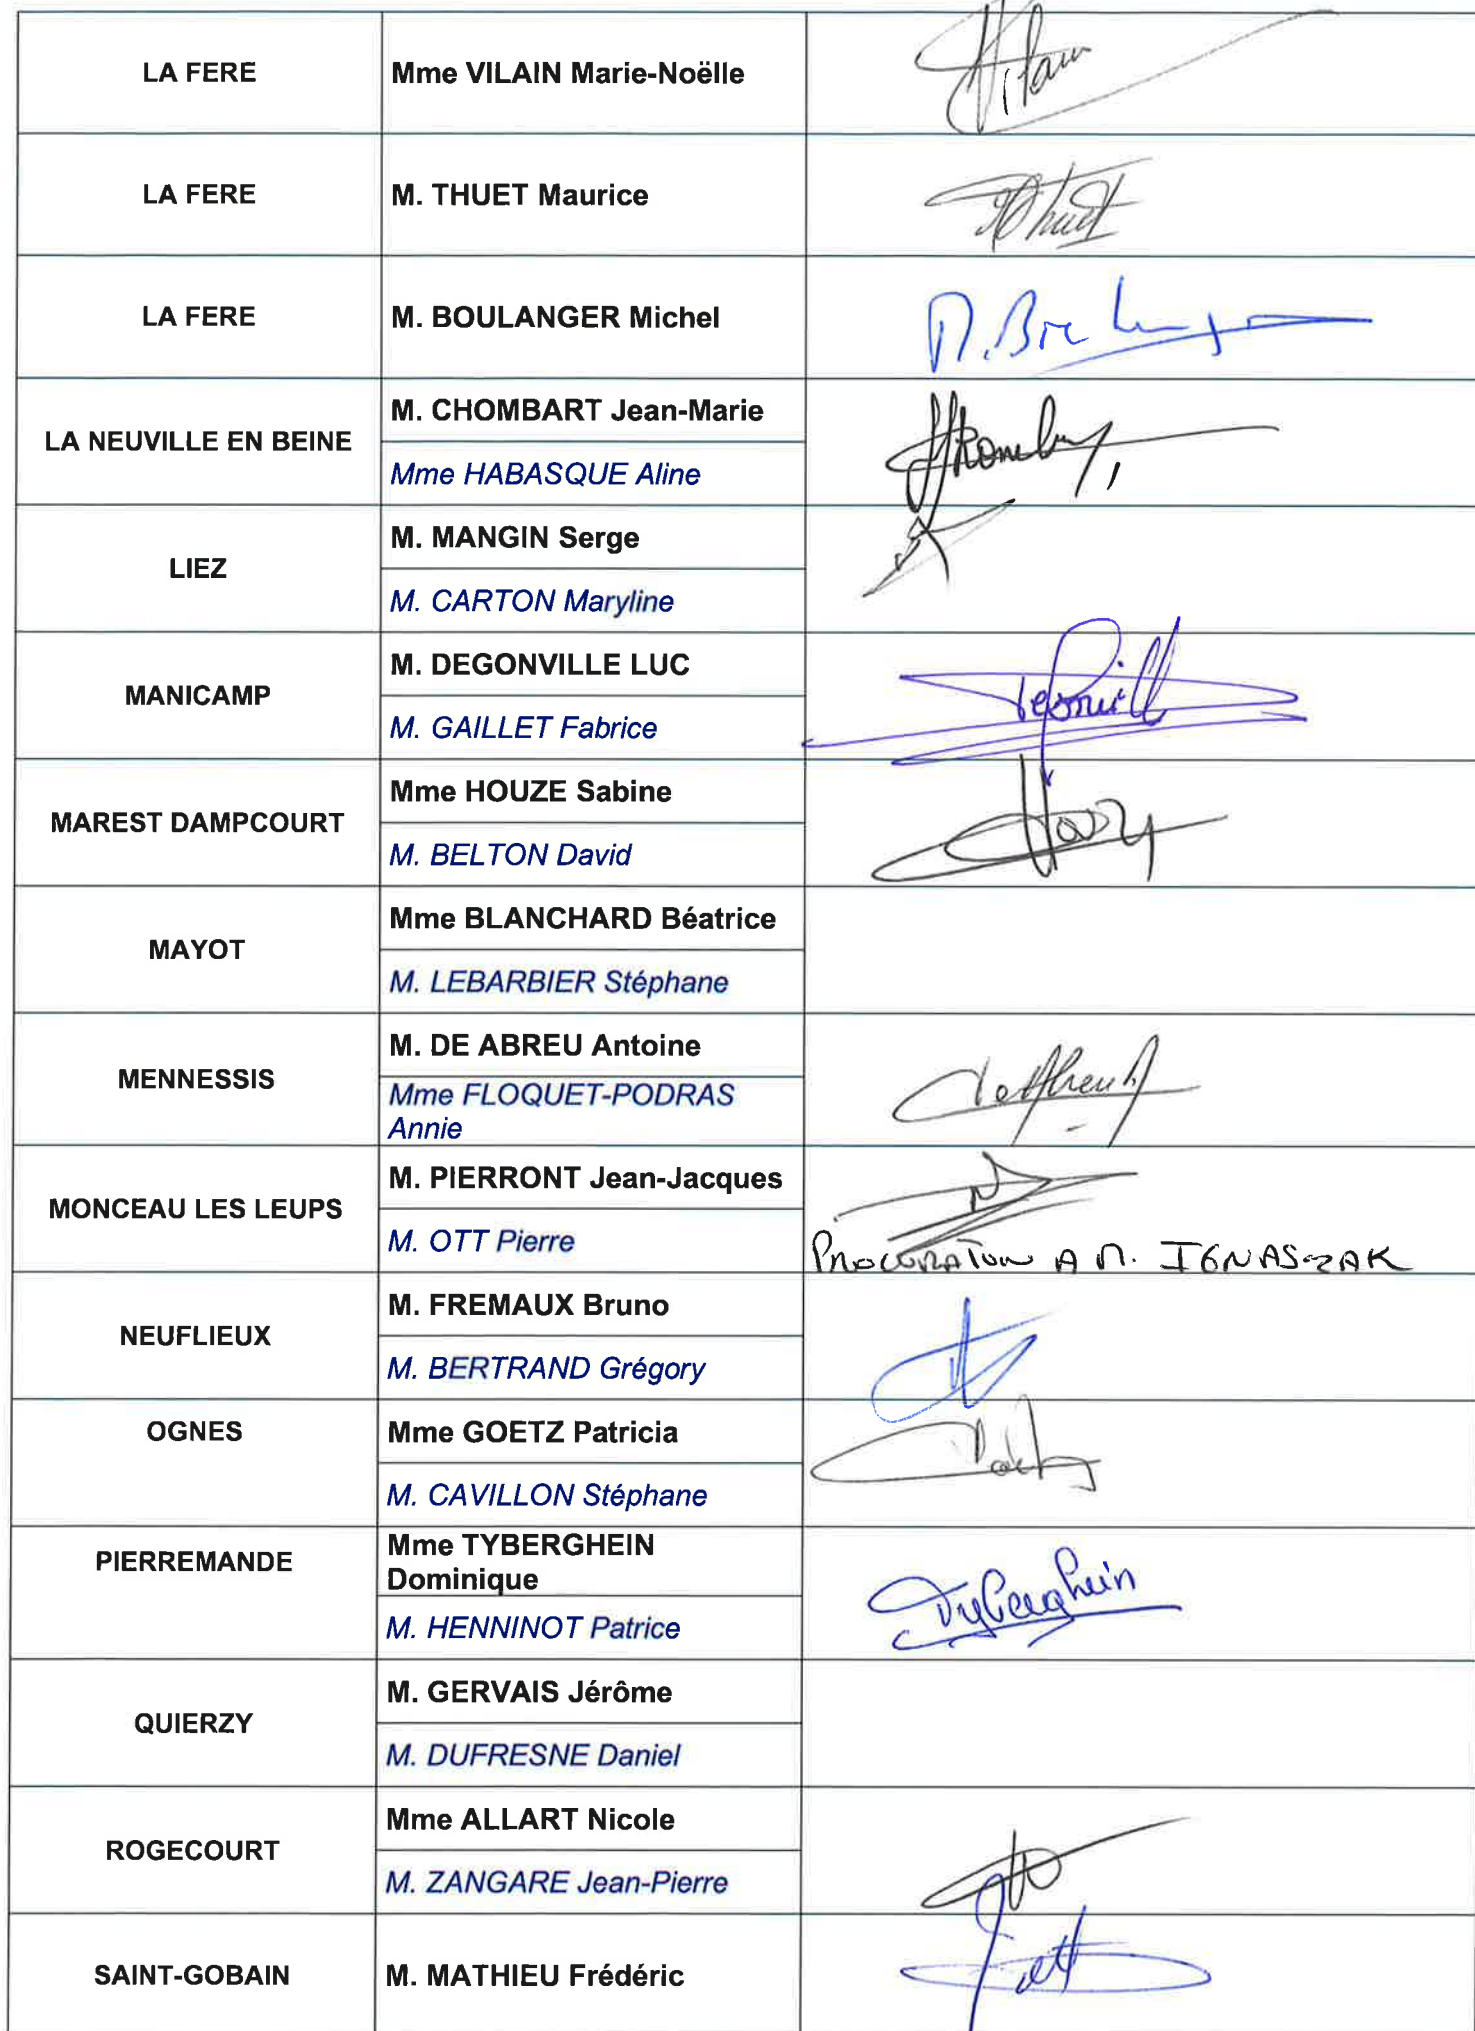 LA FERE
Mme VILAIN Marie-Noëlle
Vilain
LA FERE
M. THUET Maurice
Thuet
LA FERE
M. BOULANGER Michel
LA NEUVILLE EN BEINE
M. CHOMBART Jean-Marie
Mme HABASQUE Aline
LIEZ
M. MANGIN Serge
M. CARTON Maryline
MANICAMP
M. DEGONVILLE LUC
M. GAILLET Fabrice
MAREST DAMPCOURT
Mme HOUZE Sabine
M. BELTON David
MAYOT
Mme BLANCHARD Béatrice
M. LEBARBIER Stéphane
MENNESSIS
M. DE ABREU Antoine
Mme FLOQUET-PODRAS
Annie
MONCEAU LES LEUPS
M. PIERRONT Jean-Jacques
M. OTT Pierre
PROCURATION A M. IGNASZAK
NEUFLIEUX
M. FREMAUX Bruno
M. BERTRAND Grégory
OGNES
Mme GOETZ Patricia
M. CAVILLON Stéphane
PIERREMANDE
Mme TYBERGHEIN
Dominique
M. HENNINOT Patrice
Tyberghein
QUIERZY
M. GERVAIS Jérôme
M. DUFRESNE Daniel
ROGECOURT
Mme ALLART Nicole
M. ZANGARE Jean-Pierre
SAINT-GOBAIN
M. MATHIEU Frédéric